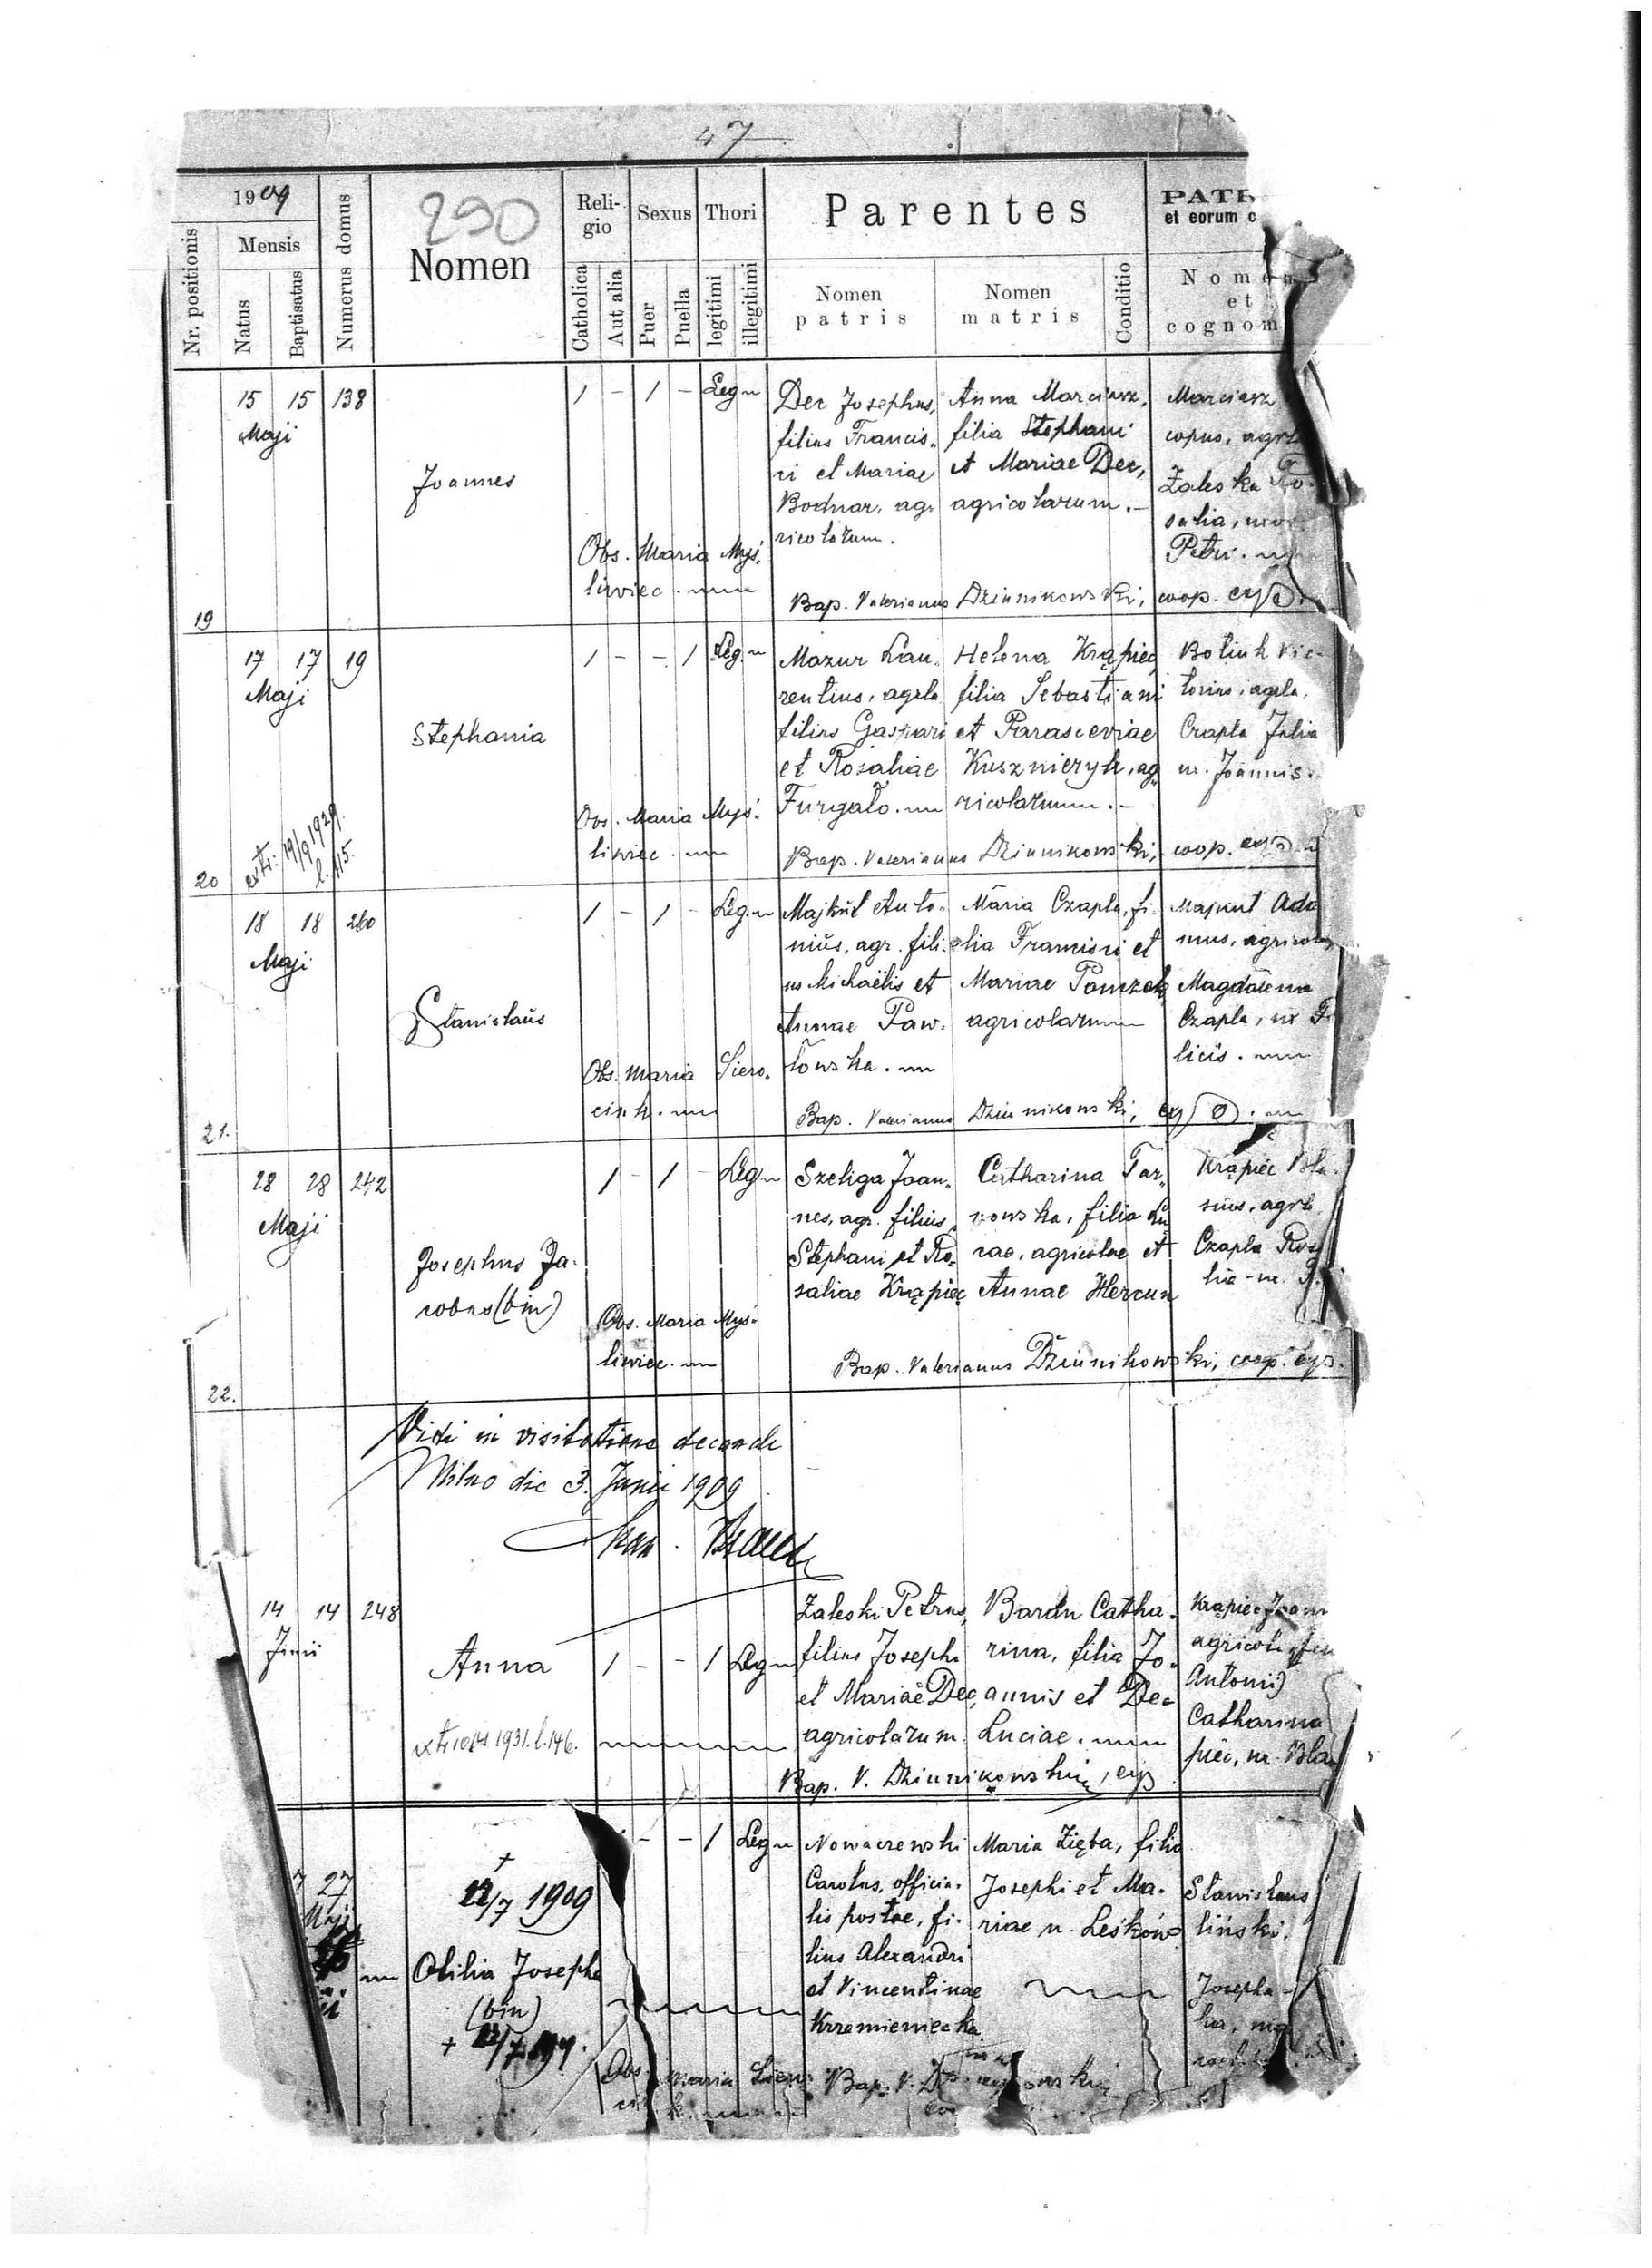 47
1909
290
Nr. positionis
Mensis
Natus
Baptisatus
Numerus domus
Nomen
Religio
Catholica
Aut alia
Sexus
Puer
Puella
Thori
legitimi
illegitimi
Parentes
Nomen patris
Nomen matris
Conditio
et eorum c
Nomen
et
cognom
19
15 15 138
Maji
Joannes
1 - 1 - Leg
Dec Josephus,
filius Francis-
ci et Mariae
Bodnar, ag-
ricolarum.
Anna Marciasz,
filia Stephani
et Mariae Dec,
agricolarum.-
Marciasz
copus, agr
Zaleska Ro-
salia,
Petri.
Obs. Maria Myś-
liwiec.
Bap. Valerianus Dziunikowski, coop.
20
17 17 19
Maji
Stephania
extr: 19/9 1929.
l. 115.
1 - - 1 Leg.
Mazur Lau-
rentius, agrla
filius Gaspari
et Rosaliae
Furgało.
Helena Krąpiec
filia Sebastiani
et Parasceviae
Kusznieryk, ag-
ricolarum.-
Boliuk Vic-
torius, agrla,
Czapla Julia
ux. Joannis.
Obs. Maria Myś-
liwiec.
Bap. Valerianus Dziunikowski, coop.
21.
18 18 260
Maji
Stanislaŭs
1 - 1 - Leg.
Majkut Anto-
niŭs, agr. fili-
us Michaëlis et
Annae Paw-
łowska.
Maria Czapla, fi-
lia Francisci et
Mariae
agricolarum
Majkut Ada
mus, agricola
Magdalena
Czapla, ux F
licis.
Obs. Maria Siero-
cink.
Bap. Valerianus Dziunikowski,
22.
28 28 242
Maji
Josephus Ja-
cobus (bin)
1 - 1 - Leg
Szeliga Joan-
nes, agr. filius
Stephani et Ro-
saliae Krąpiec
Catharina Tar-
nowska, filia Lu
cae, agricolae et
Annae Hercun
Krąpiec Bla-
sius, agrla
Czapla Rosa
lia - ux.
Obs. Maria Myś-
liwiec.
Bap. Valerianus Dziunikowski, coop.
Vidi in visitatione decanali
Milno die 3. Junii 1909
14 14 248
Junii
Anna
1931. l. 146.
1 - - 1 Leg
Zaleski Petrus,
filius Josephi
et Mariae Dec,
agricolarum.
Bardu Catha-
rina, filia Jo-
annis et Dec
Luciae.
Krąpiec Joan
agricola
Antonii)
Catharina
piec, ux. Bla
Bap. V. Dziunikowski,
27
Maji
+
12/7 1909
Otilia Josepha
(bin)
+
- - 1 Leg
Nowaczewski
Carolus, officia-
lis postae, fi-
lius Alexandri
et Vincentinae
Krzemieniecka.
Maria Zięba, filia
Josephi et Ma-
riae n. Leśków
Stanislaus
liński.
Josepha
Obs. Maria
Bap. V.